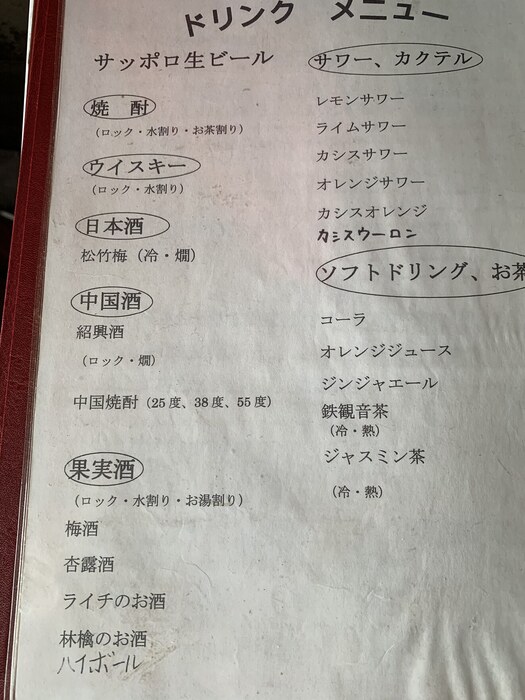 ドリンク メニュー
サッポロ生ビール
焼 酎
(ロック・水割り・お茶割り)
ウイスキー
(ロック・水割り)
日本酒
松竹梅(冷・燗)
中国酒
紹興酒
(ロック・燗)
中国焼酎(25度、38度、55度)
果実酒
(ロック・水割り・お湯割り)
梅酒
杏露酒
ライチのお酒
林檎のお酒
ハイボール
サワー、カクテル
レモンサワー
ライムサワー
カシスサワー
オレンジサワー
カシスオレンジ
カシスウーロン
ソフトドリング、お茶
コーラ
オレンジジュース
ジンジャエール
鉄観音茶
(冷・熱)
ジャスミン茶
(冷・熱)